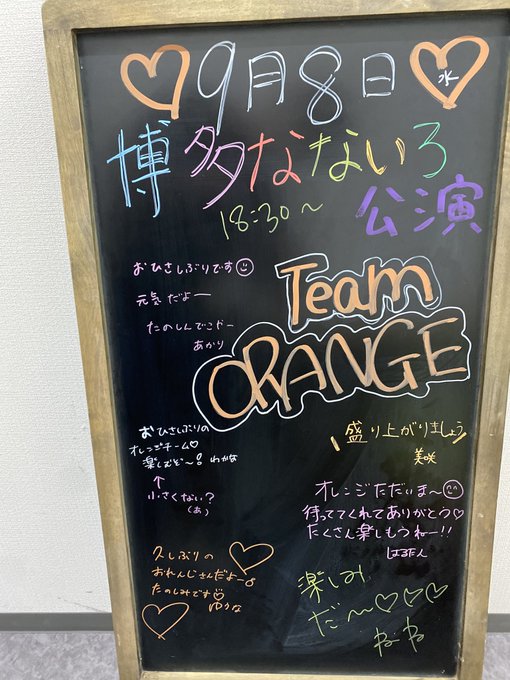 9月8日
水
博多なないろ
18:30〜
公演
おひさしぶりです
元気だよー
たのしんでこやー
あかり
Team
ORANGE
おひさしぶりの
オレンジチーム♡
楽しむぞ〜! わかな
↑
小さくない?
(あ)
盛り上がりましょう
美咲
オレンジただいま〜
待っててくれてありがとう♡
たくさん楽しもうねー!!
はるたん
久しぶりの
おれんじさんだよー
たのしみです
ゆうな
楽しみ
だ〜♡♡♡